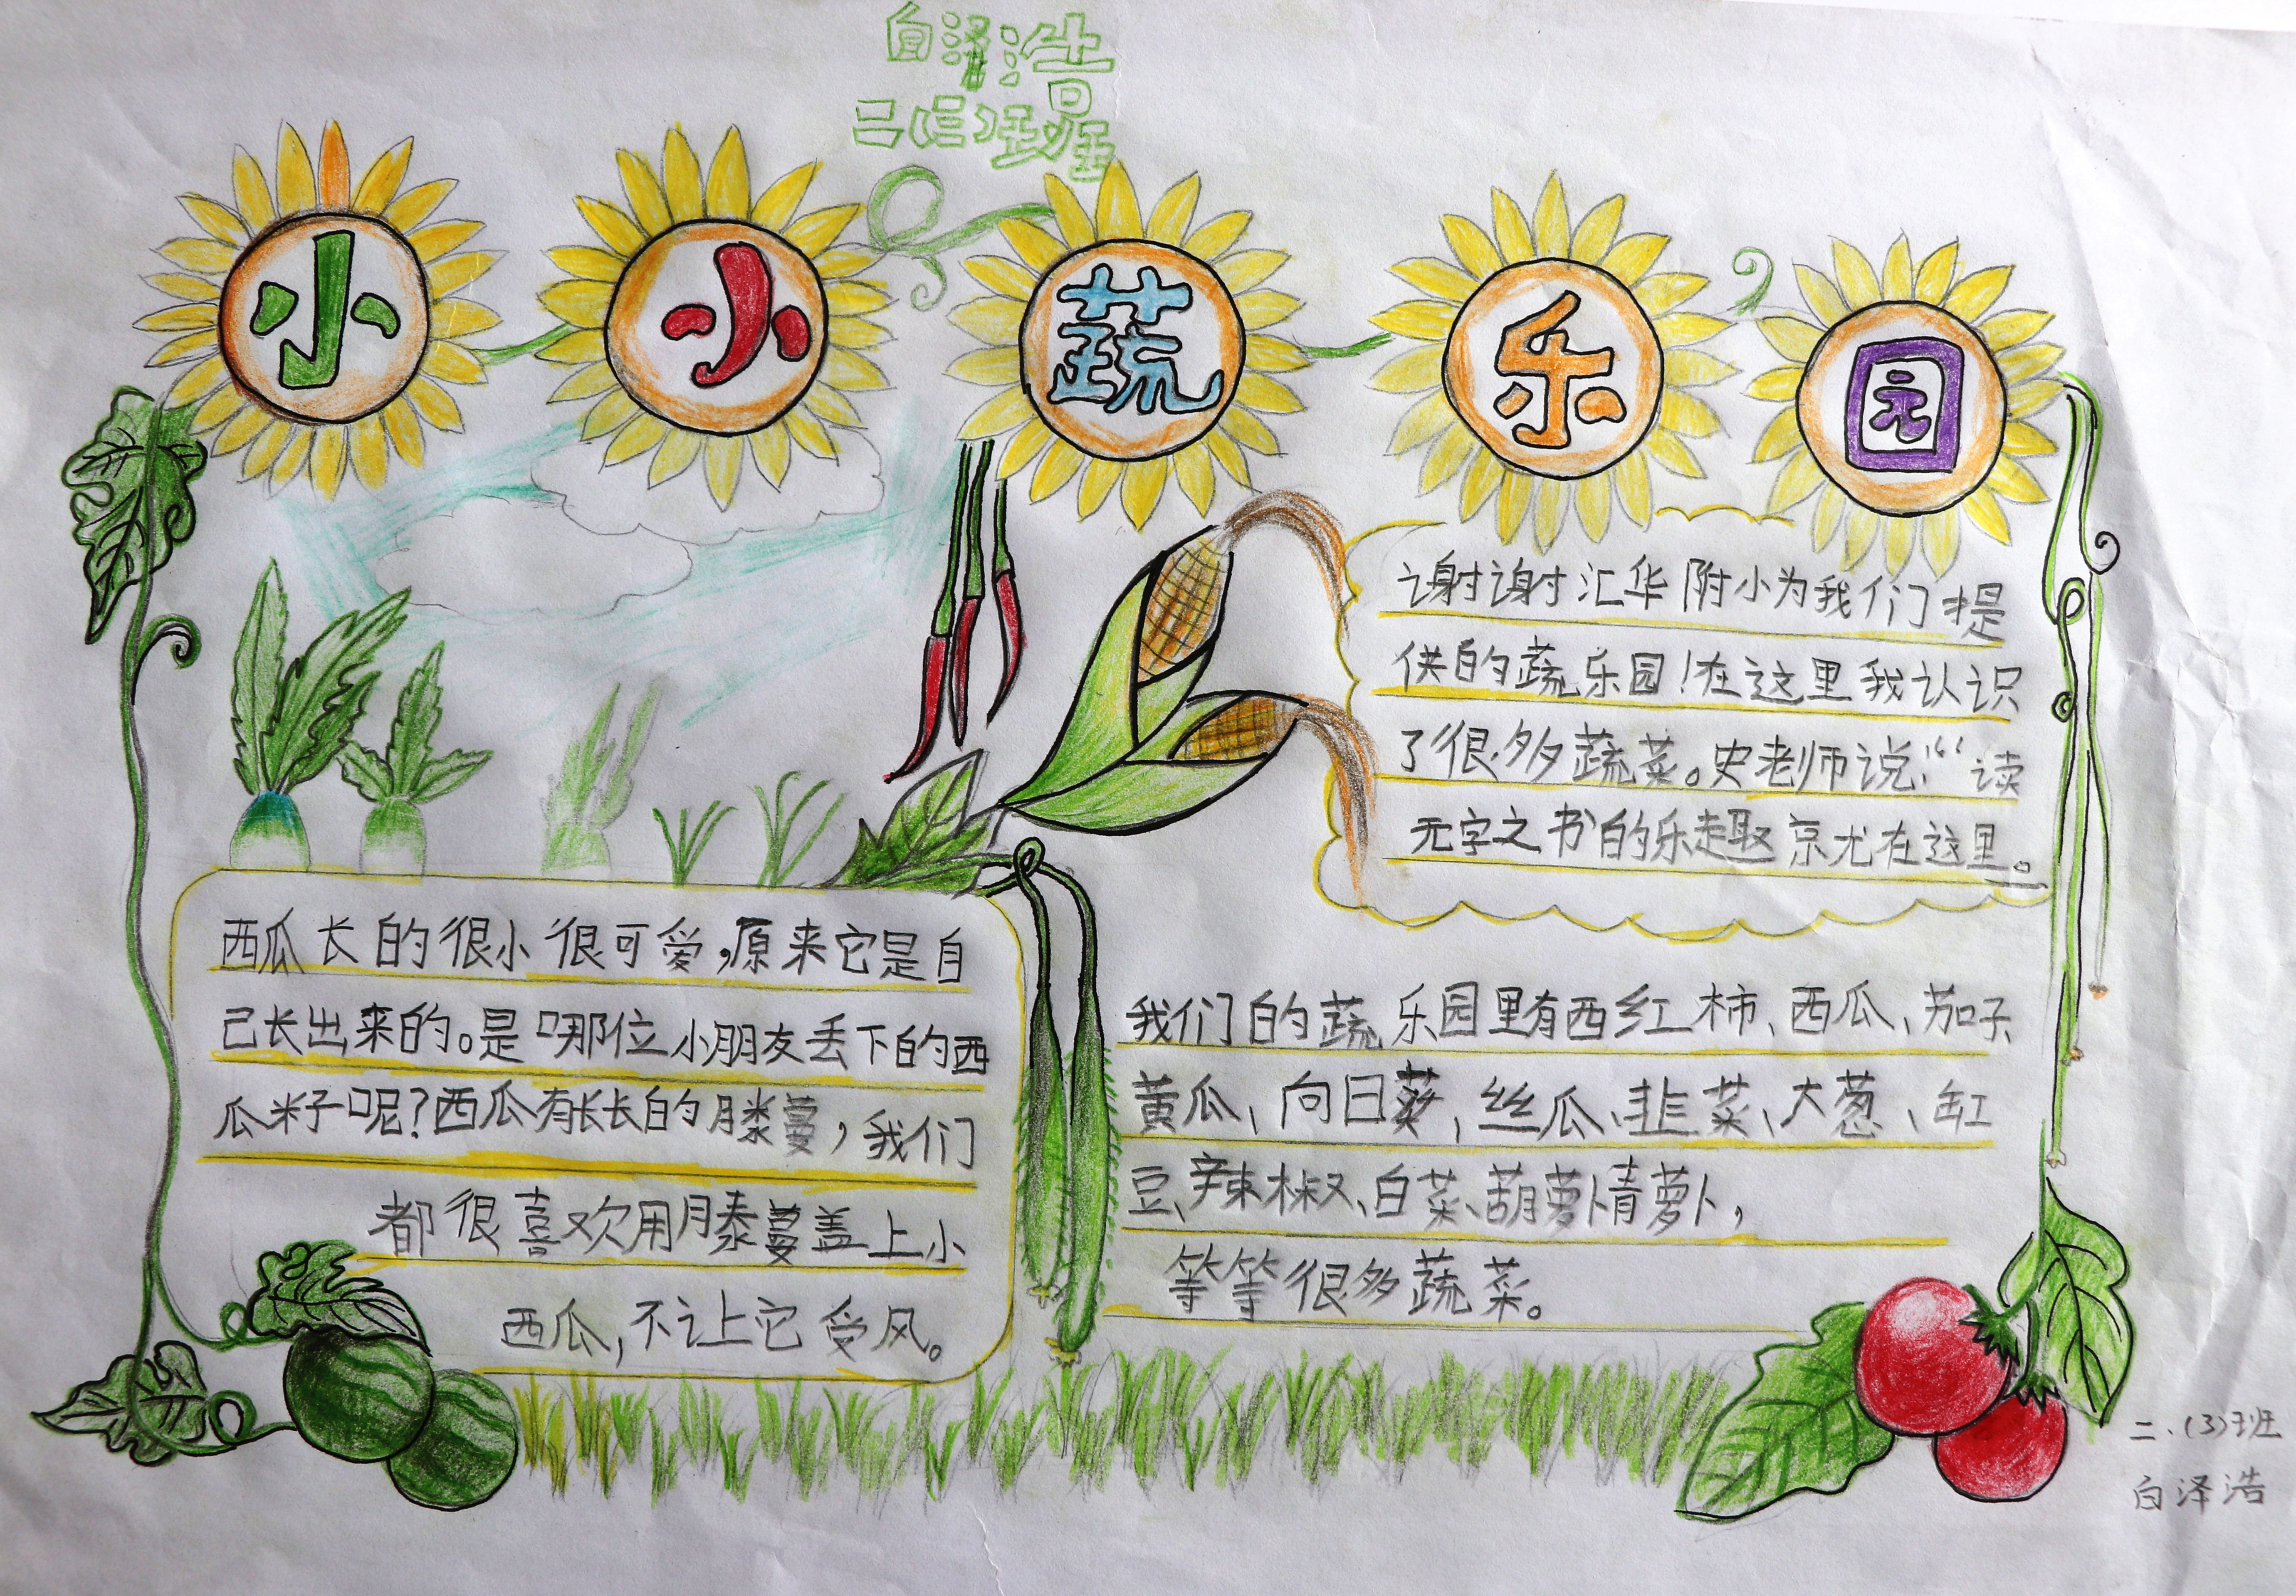 白泽浩
二三班
小小蔬乐园
谢谢汇华附小为我们提
供的蔬乐园!在这里我认识
了很多蔬菜。史老师说:“读
无字之书的乐趣就在这里。
西瓜长的很小很可爱,原来它是自
己长出来的。是哪位小朋友丢下的西
瓜籽呢?西瓜有长长的藤蔓,我们
都很喜欢用藤蔓盖上小
西瓜,不让它受风。
我们的蔬乐园里有西红柿、西瓜、茄子
黄瓜、向日葵,丝瓜、韭菜、大葱、缸
豆、辣椒、白菜、葫萝卜青萝卜,
等等很多蔬菜。
二.(3)班
白泽浩